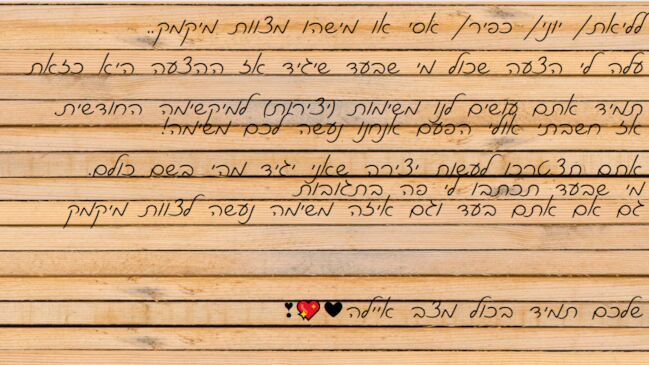 לליאת/ יוני/ כפיר/ אסי או מישהו מצוות מיקמק..
עלה לי הצעה שכול מי שבעד שיגיד אז ההצעה היא כזאת
תמיד אתם עושים לנו משימות (יצירות) למיקשימה החודשית
אז חשבתי אולי הפעם אנחנו נעשה לכם משימה!
אתם תצטרכו לעשות יצירה שאני יגיד מהי בשם כולם.
מי שבעד תכתבו לי פה בתגובות
גם אם אתם בעד וגם איזה משימה נעשה לצוות מיקמק
שלכם תמיד בכול מצב איילה🖤💖❣